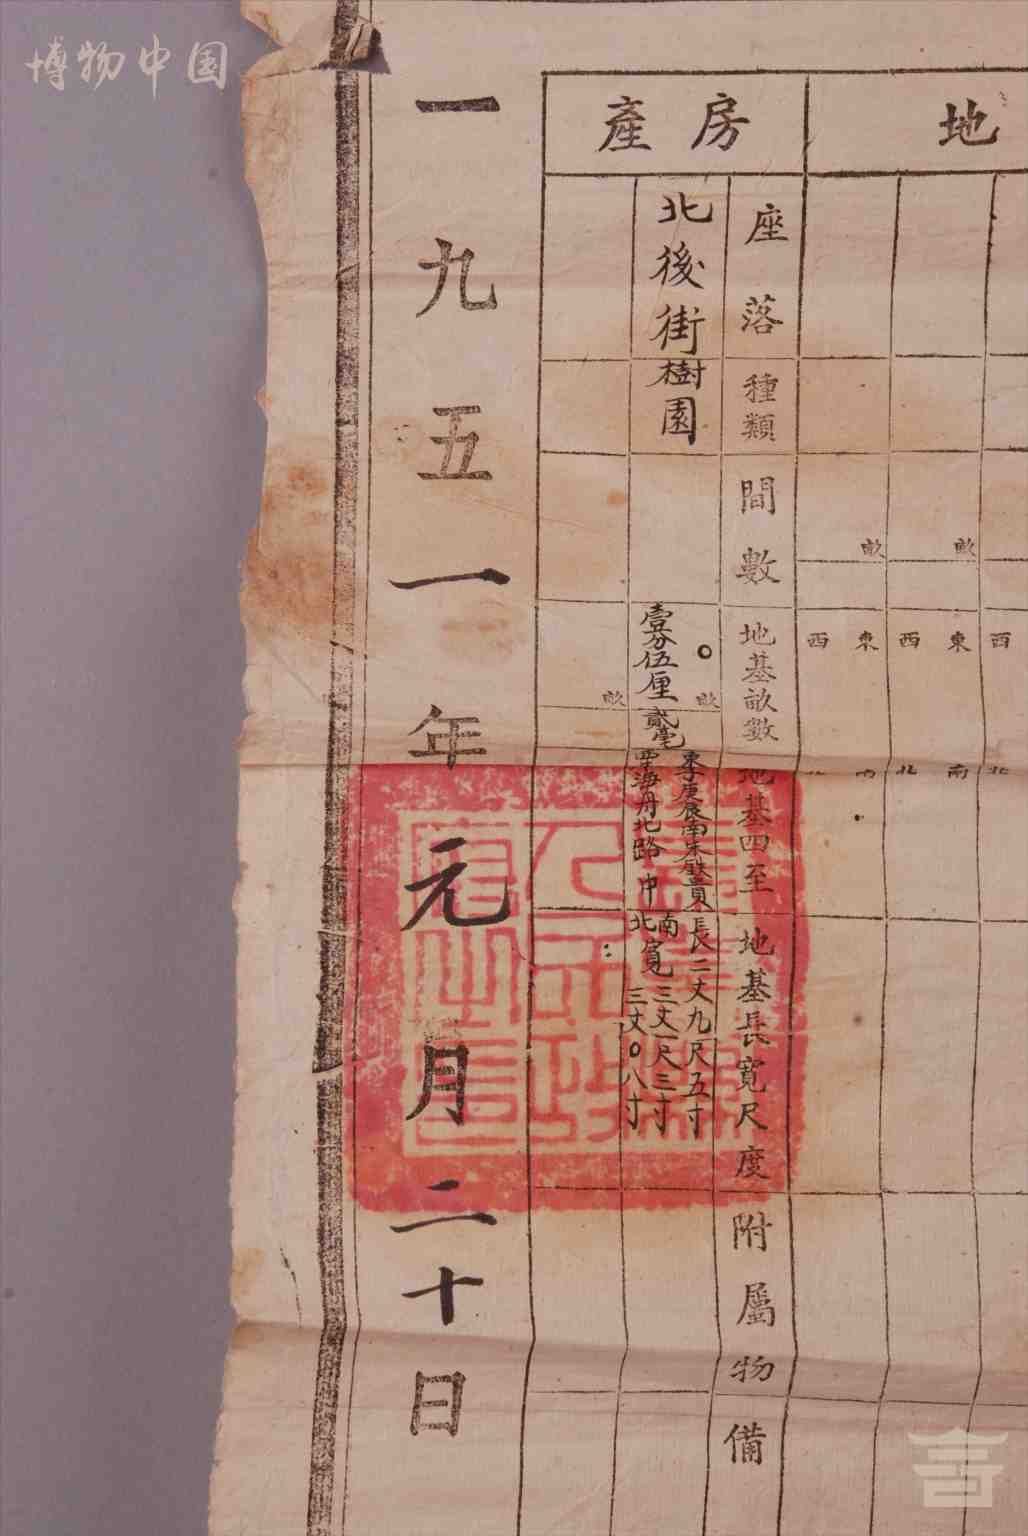 博物中国
地
房產
座落
種類
間數
地基畝數
地基四至
地基長寬尺度
附屬物
備
畝
畝
東
西
東
西
西
南
北
南
北
北後街
樹園
壹分伍厘貳毫
畝
畝
北路中
長二丈九尺五寸
南寬三丈一尺三寸
北寬三丈〇八寸
一九五一年元月二十日